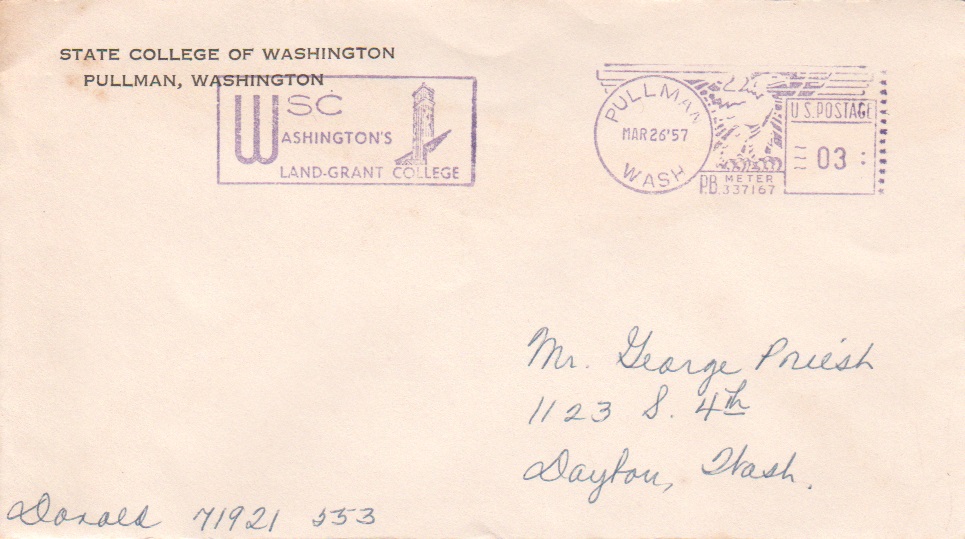 STATE COLLEGE OF WASHINGTON
PULLMAN, WASHINGTON
WSC
WASHINGTON'S
LAND-GRANT COLLEGE
PULLMAN
MAR 26 '57
WASH
U.S. POSTAGE
03
P.B. METER
337167
Mr. George Priesh
1123 S. 4th
Dayton, Wash.
Donald 71921 553